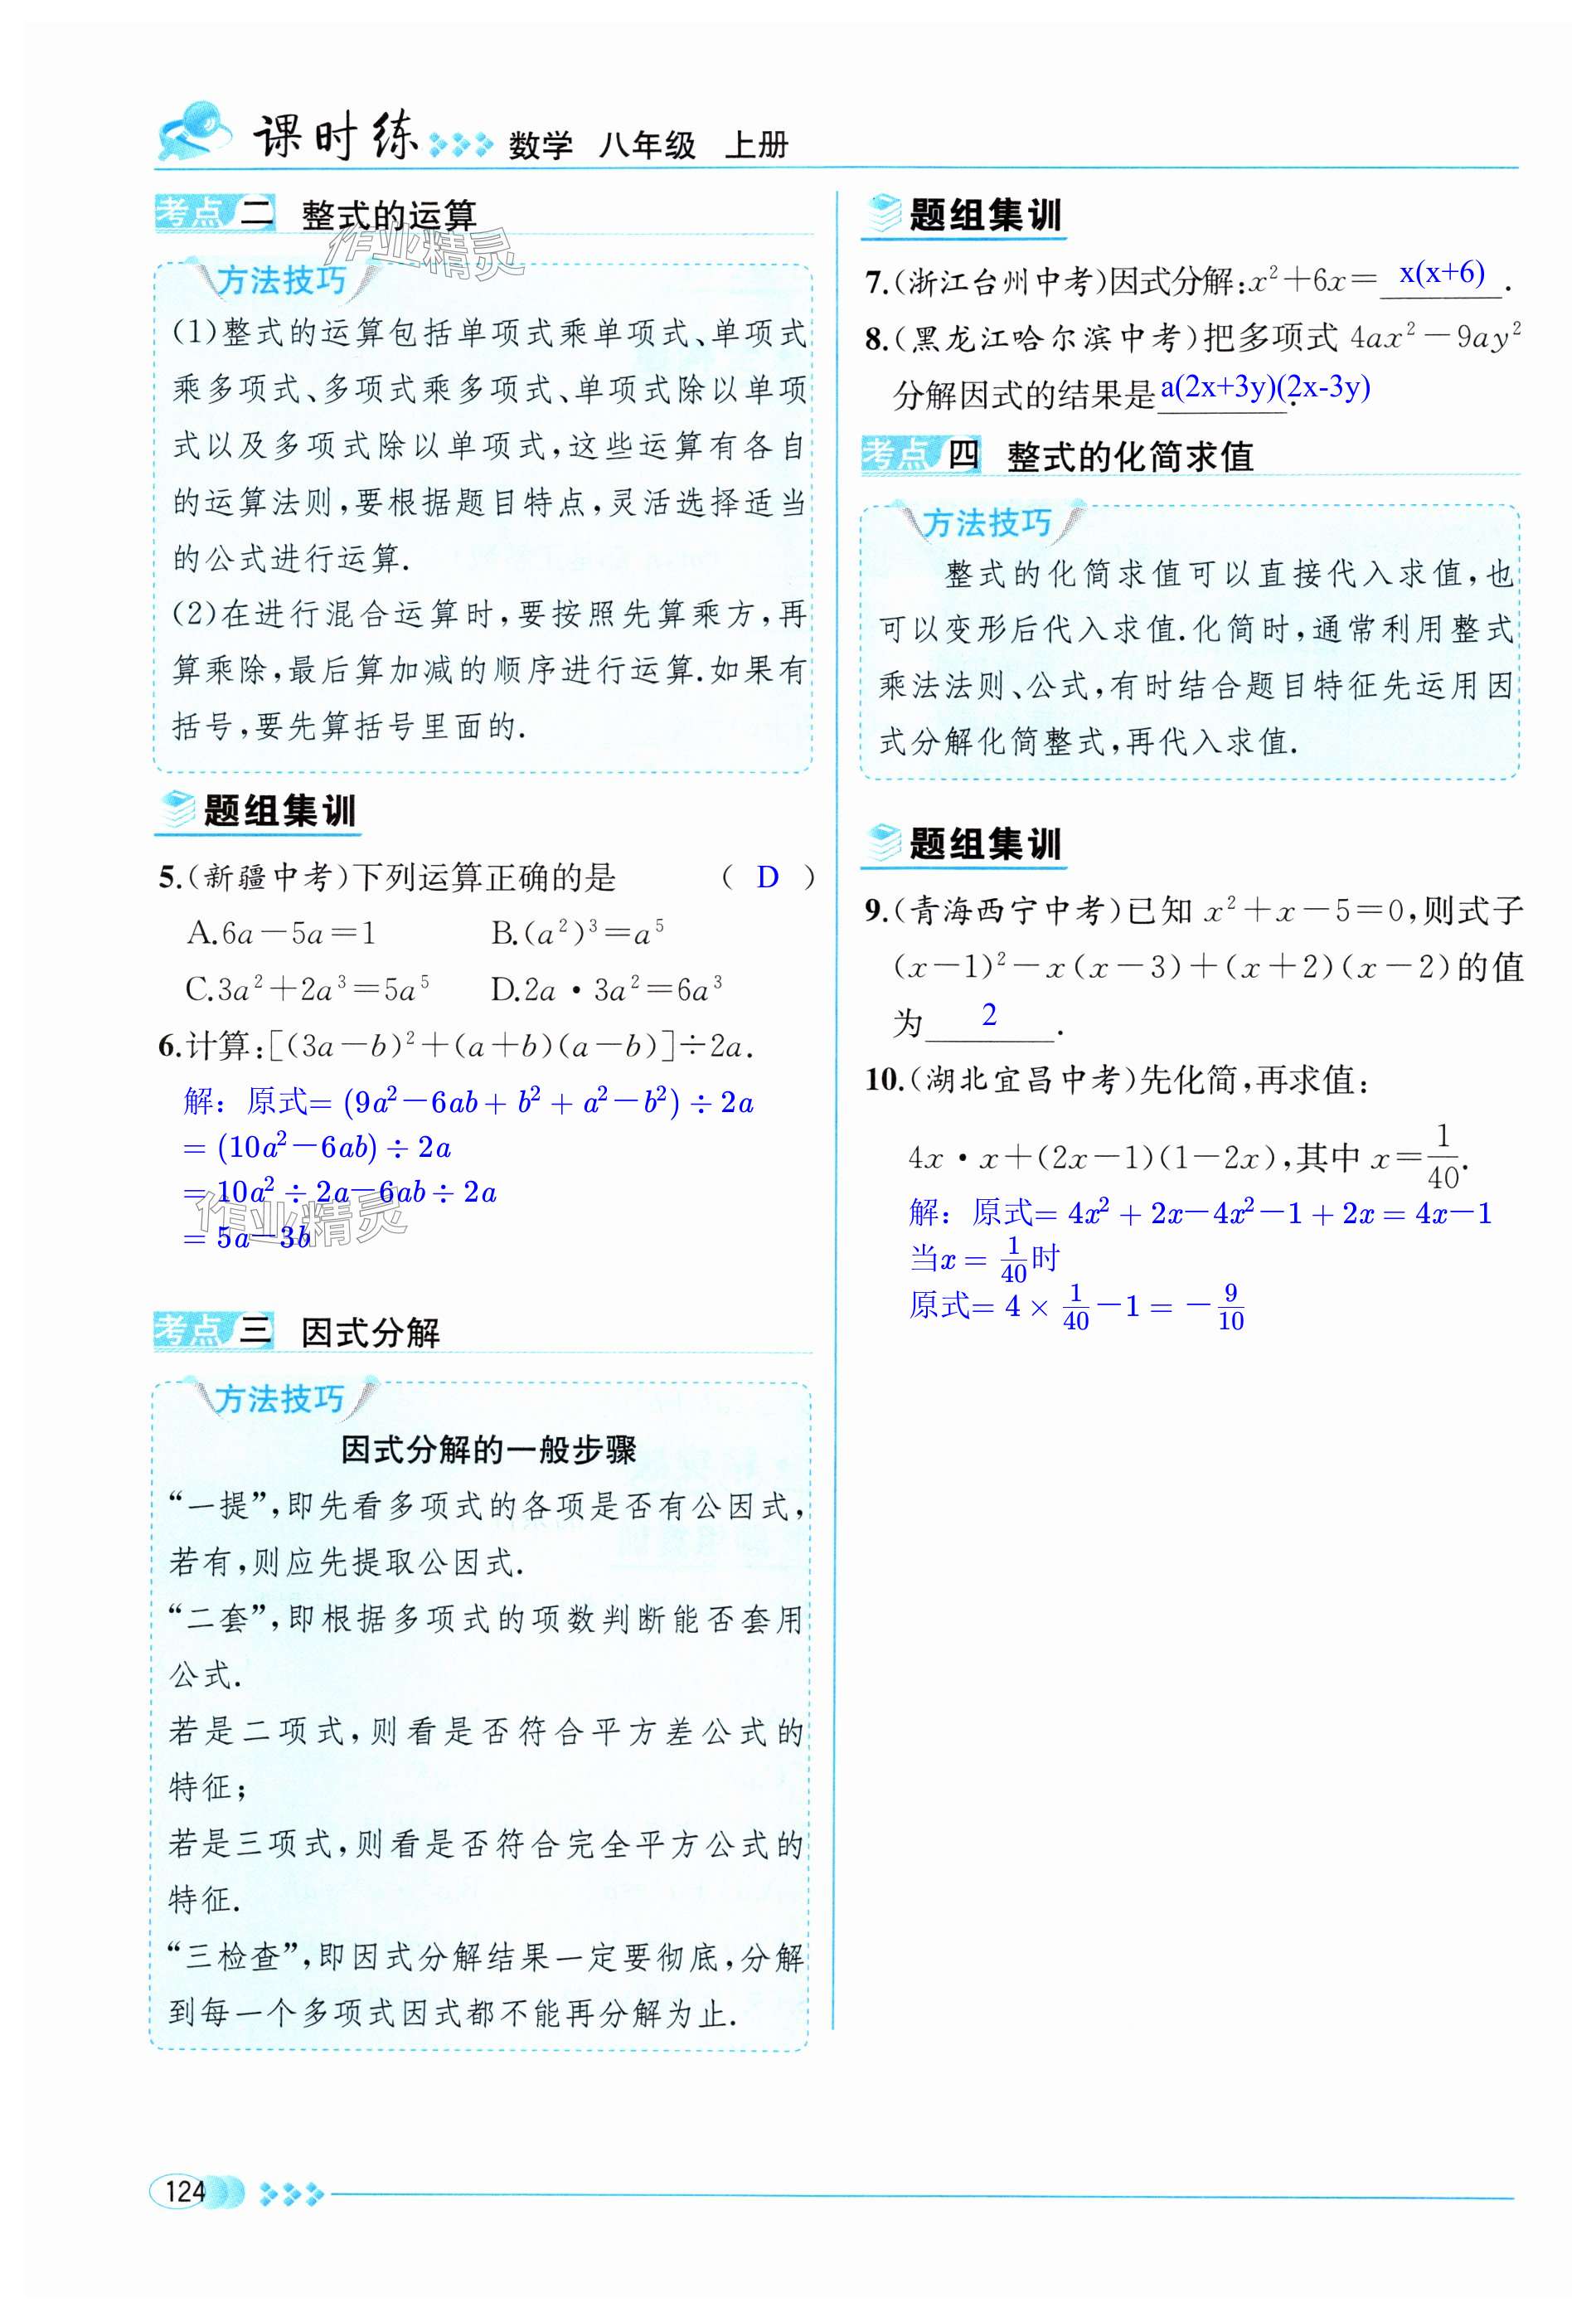 课时练 数学 八年级 上册
考点二 整式的运算
作业精灵
方法技巧
(1)整式的运算包括单项式乘单项式、单项式
乘多项式、多项式乘多项式、单项式除以单项
式以及多项式除以单项式,这些运算有各自
的运算法则,要根据题目特点,灵活选择适当
的公式进行运算.
(2)在进行混合运算时,要按照先算乘方,再
算乘除,最后算加减的顺序进行运算.如果有
括号,要先算括号里面的.
题组集训
5.(新疆中考)下列运算正确的是 ( D )
A.6a-5a=1 B.(a²)³=a⁵
C.3a²+2a³=5a⁵ D.2a·3a²=6a³
6.计算:[(3a-b)²+(a+b)(a-b)]÷2a.
解:原式=(9a²-6ab+b²+a²-b²)÷2a
=(10a²-6ab)÷2a
=10a²÷2a-6ab÷2a
作业精灵
=5a-3b
考点三 因式分解
方法技巧
因式分解的一般步骤
“一提”,即先看多项式的各项是否有公因式,
若有,则应先提取公因式.
“二套”,即根据多项式的项数判断能否套用
公式.
若是二项式,则看是否符合平方差公式的
特征;
若是三项式,则看是否符合完全平方公式的
特征.
“三检查”,即因式分解结果一定要彻底,分解
到每一个多项式因式都不能再分解为止.
题组集训
7.(浙江台州中考)因式分解:x²+6x= x(x+6) .
8.(黑龙江哈尔滨中考)把多项式 4ax²-9ay²
分解因式的结果是 a(2x+3y)(2x-3y) .
考点四 整式的化简求值
方法技巧
整式的化简求值可以直接代入求值,也
可以变形后代入求值.化简时,通常利用整式
乘法法则、公式,有时结合题目特征先运用因
式分解化简整式,再代入求值.
题组集训
9.(青海西宁中考)已知 x²+x-5=0,则式子
(x-1)²-x(x-3)+(x+2)(x-2)的值
为 2 .
10.(湖北宜昌中考)先化简,再求值:
4x·x+(2x-1)(1-2x),其中 x=1/40.
解:原式=4x²+2x-4x²-1+2x=4x-1
当x=1/40时
原式=4×1/40-1=-9/10
124